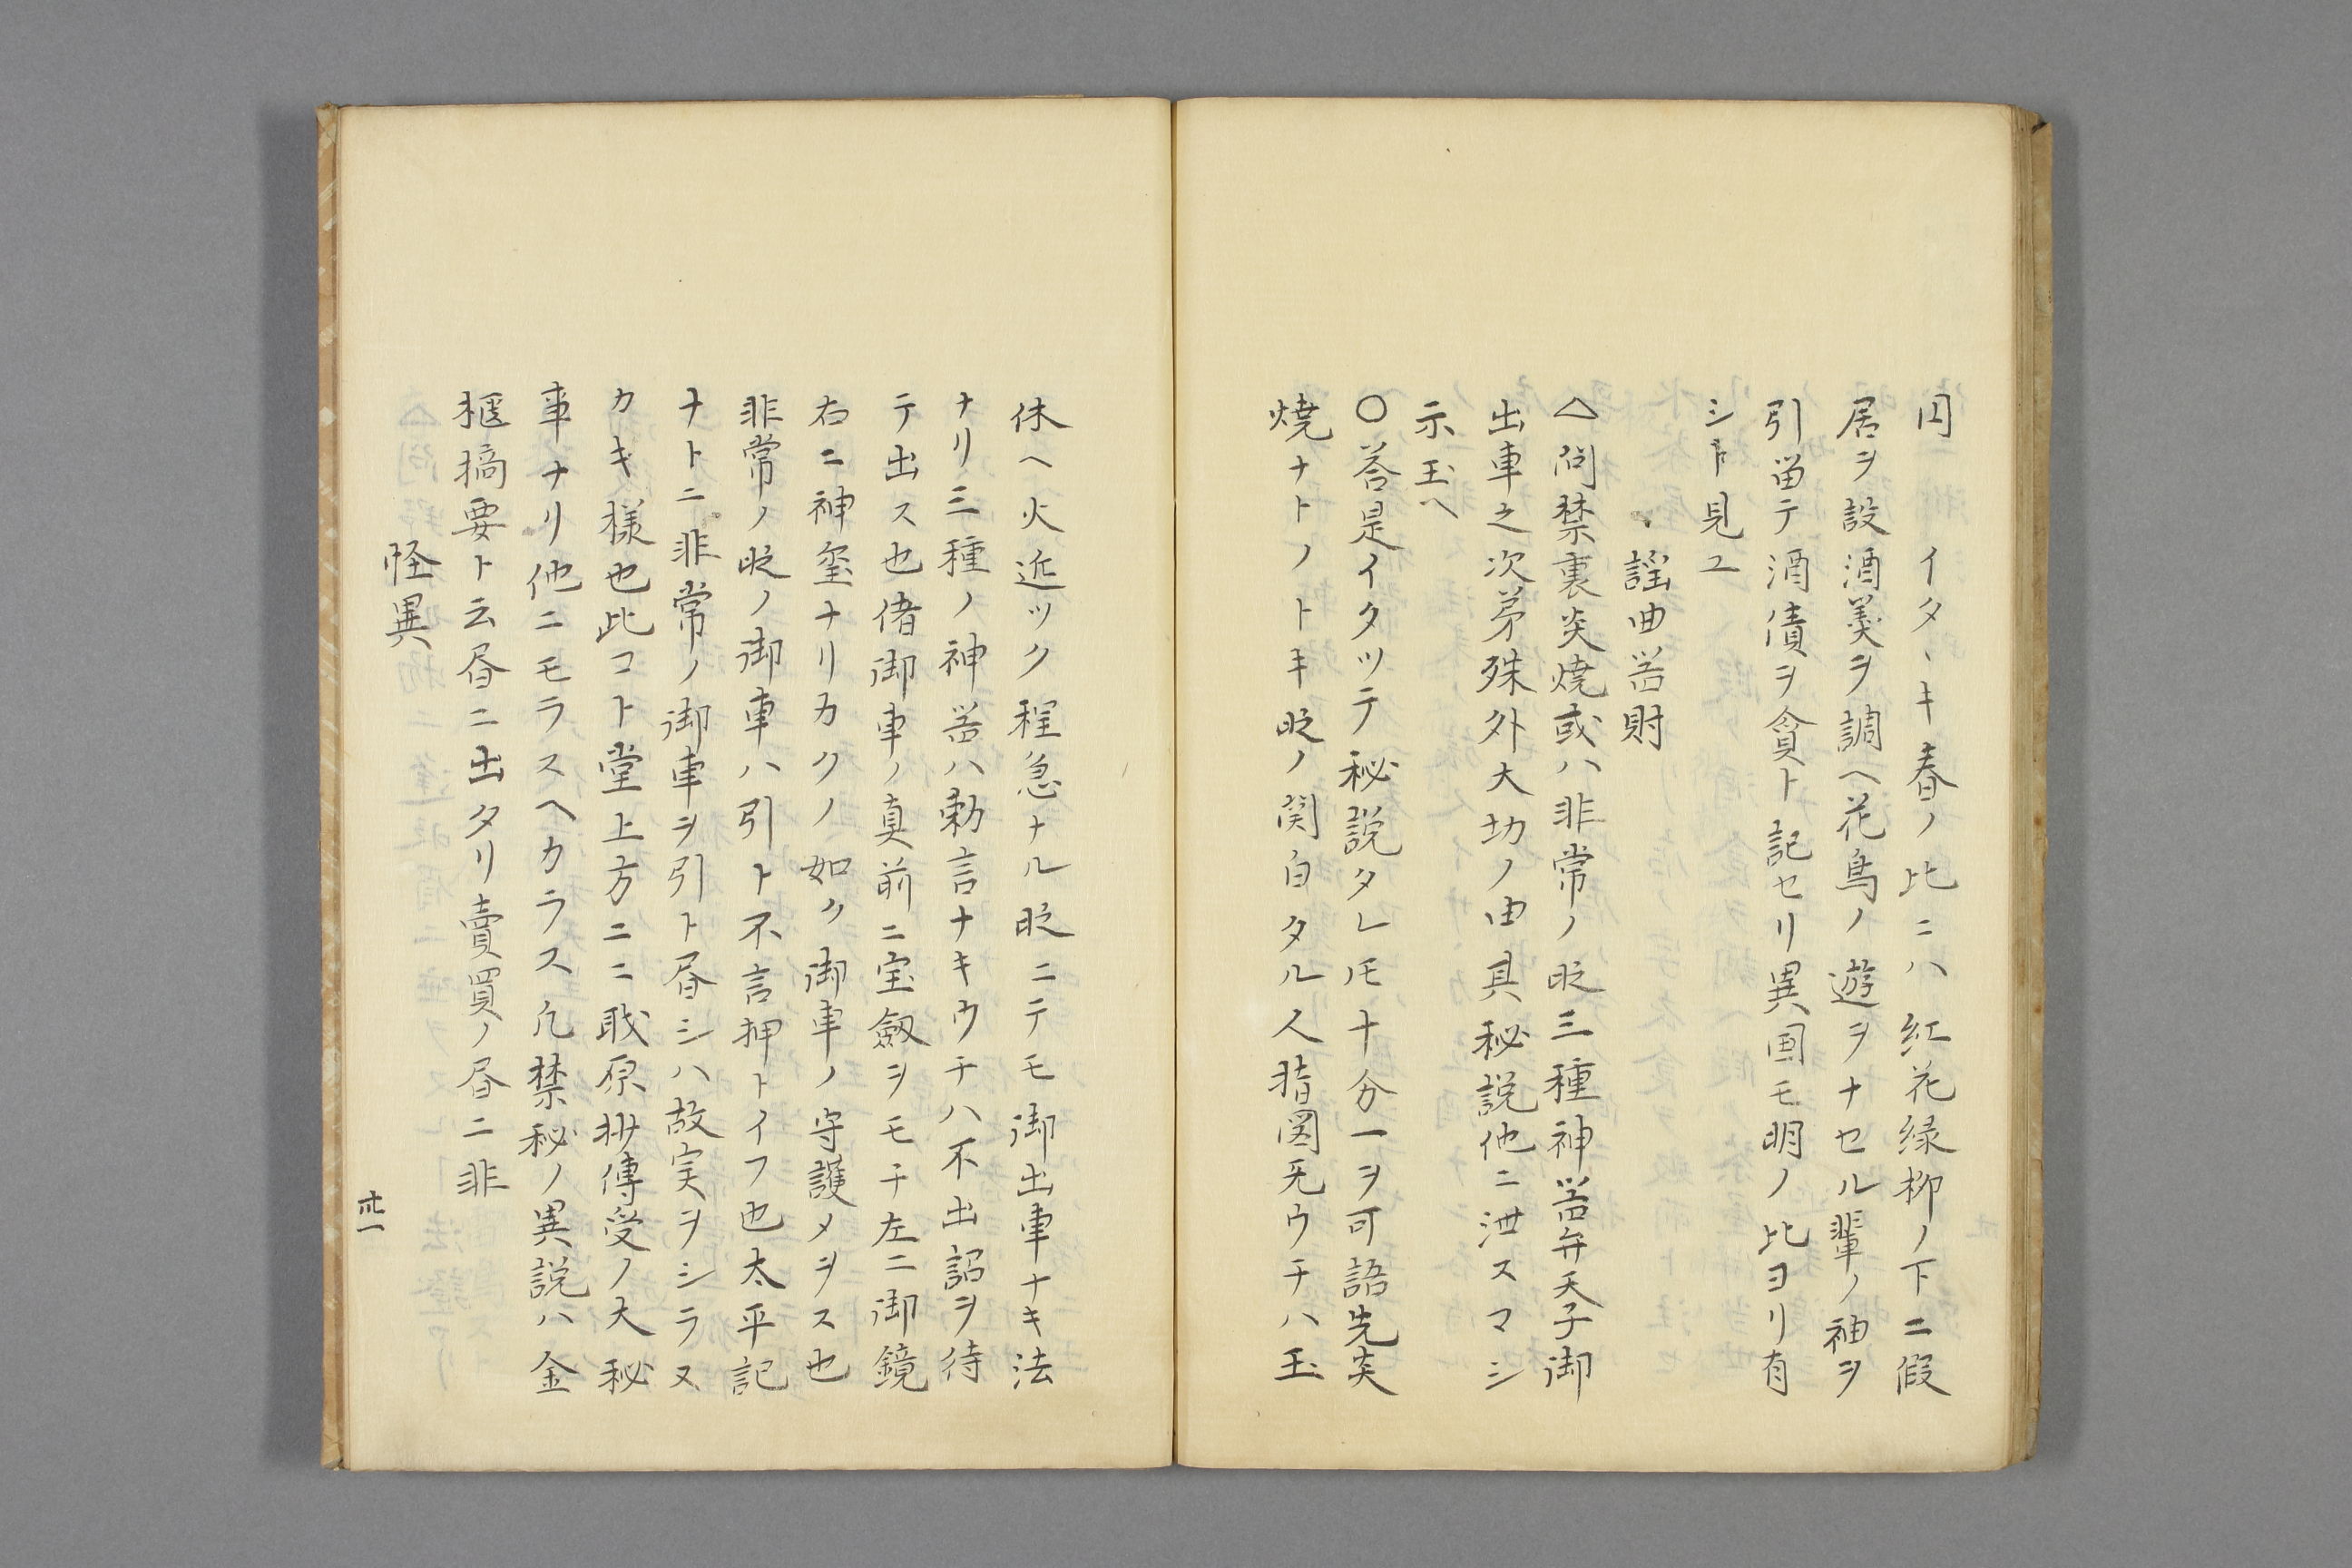 囚　イタヽキ春ノ比ニハ紅花緑柳ノ下ニ假
居ヲ設酒羹ヲ調ヘ花鳥ノ遊ヲナセル輩ノ袖ヲ
引畄テ酒債ヲ貪ト記セリ異国モ明ノ比ヨリ有
シト見ユ
謡曲器財
△問禁裏炎焼或ハ非常ノ時三種神器弁天子御
出車之次第殊外大切ノ由具秘説他ニ泄スマシ
示玉ヘ
○答是イタツテ秘説タレ𪜈十分一ヲ可語先炎
焼ナトノトキ時ノ関白タル人指図无ウチハ玉
休ヘ火近ツク程急ナル時ニテモ御出車ナキ法
ナリ三種ノ神器ハ勅言ナキウチハ不出詔ヲ待
テ出ス也偖御車ノ真前ニ宝劔ヲモチ左ニ御鏡
右ニ神璽ナリカクノ如ク御車ノ守護メヲス也
非常ノ時ノ御車ハ引ト不言押トイフ也太平記
ナトニ非常ノ御車ヲ引ト昏シハ故実ヲシラヌ
カキ様也此コト堂上方ニニ戝原抄傳受ノ大秘
事ナリ他ニモラスヘカラス凢禁秘ノ異説ハ金
摳摘要ト云昏ニ出タリ賣買ノ昏ニ非
怪異
卅一